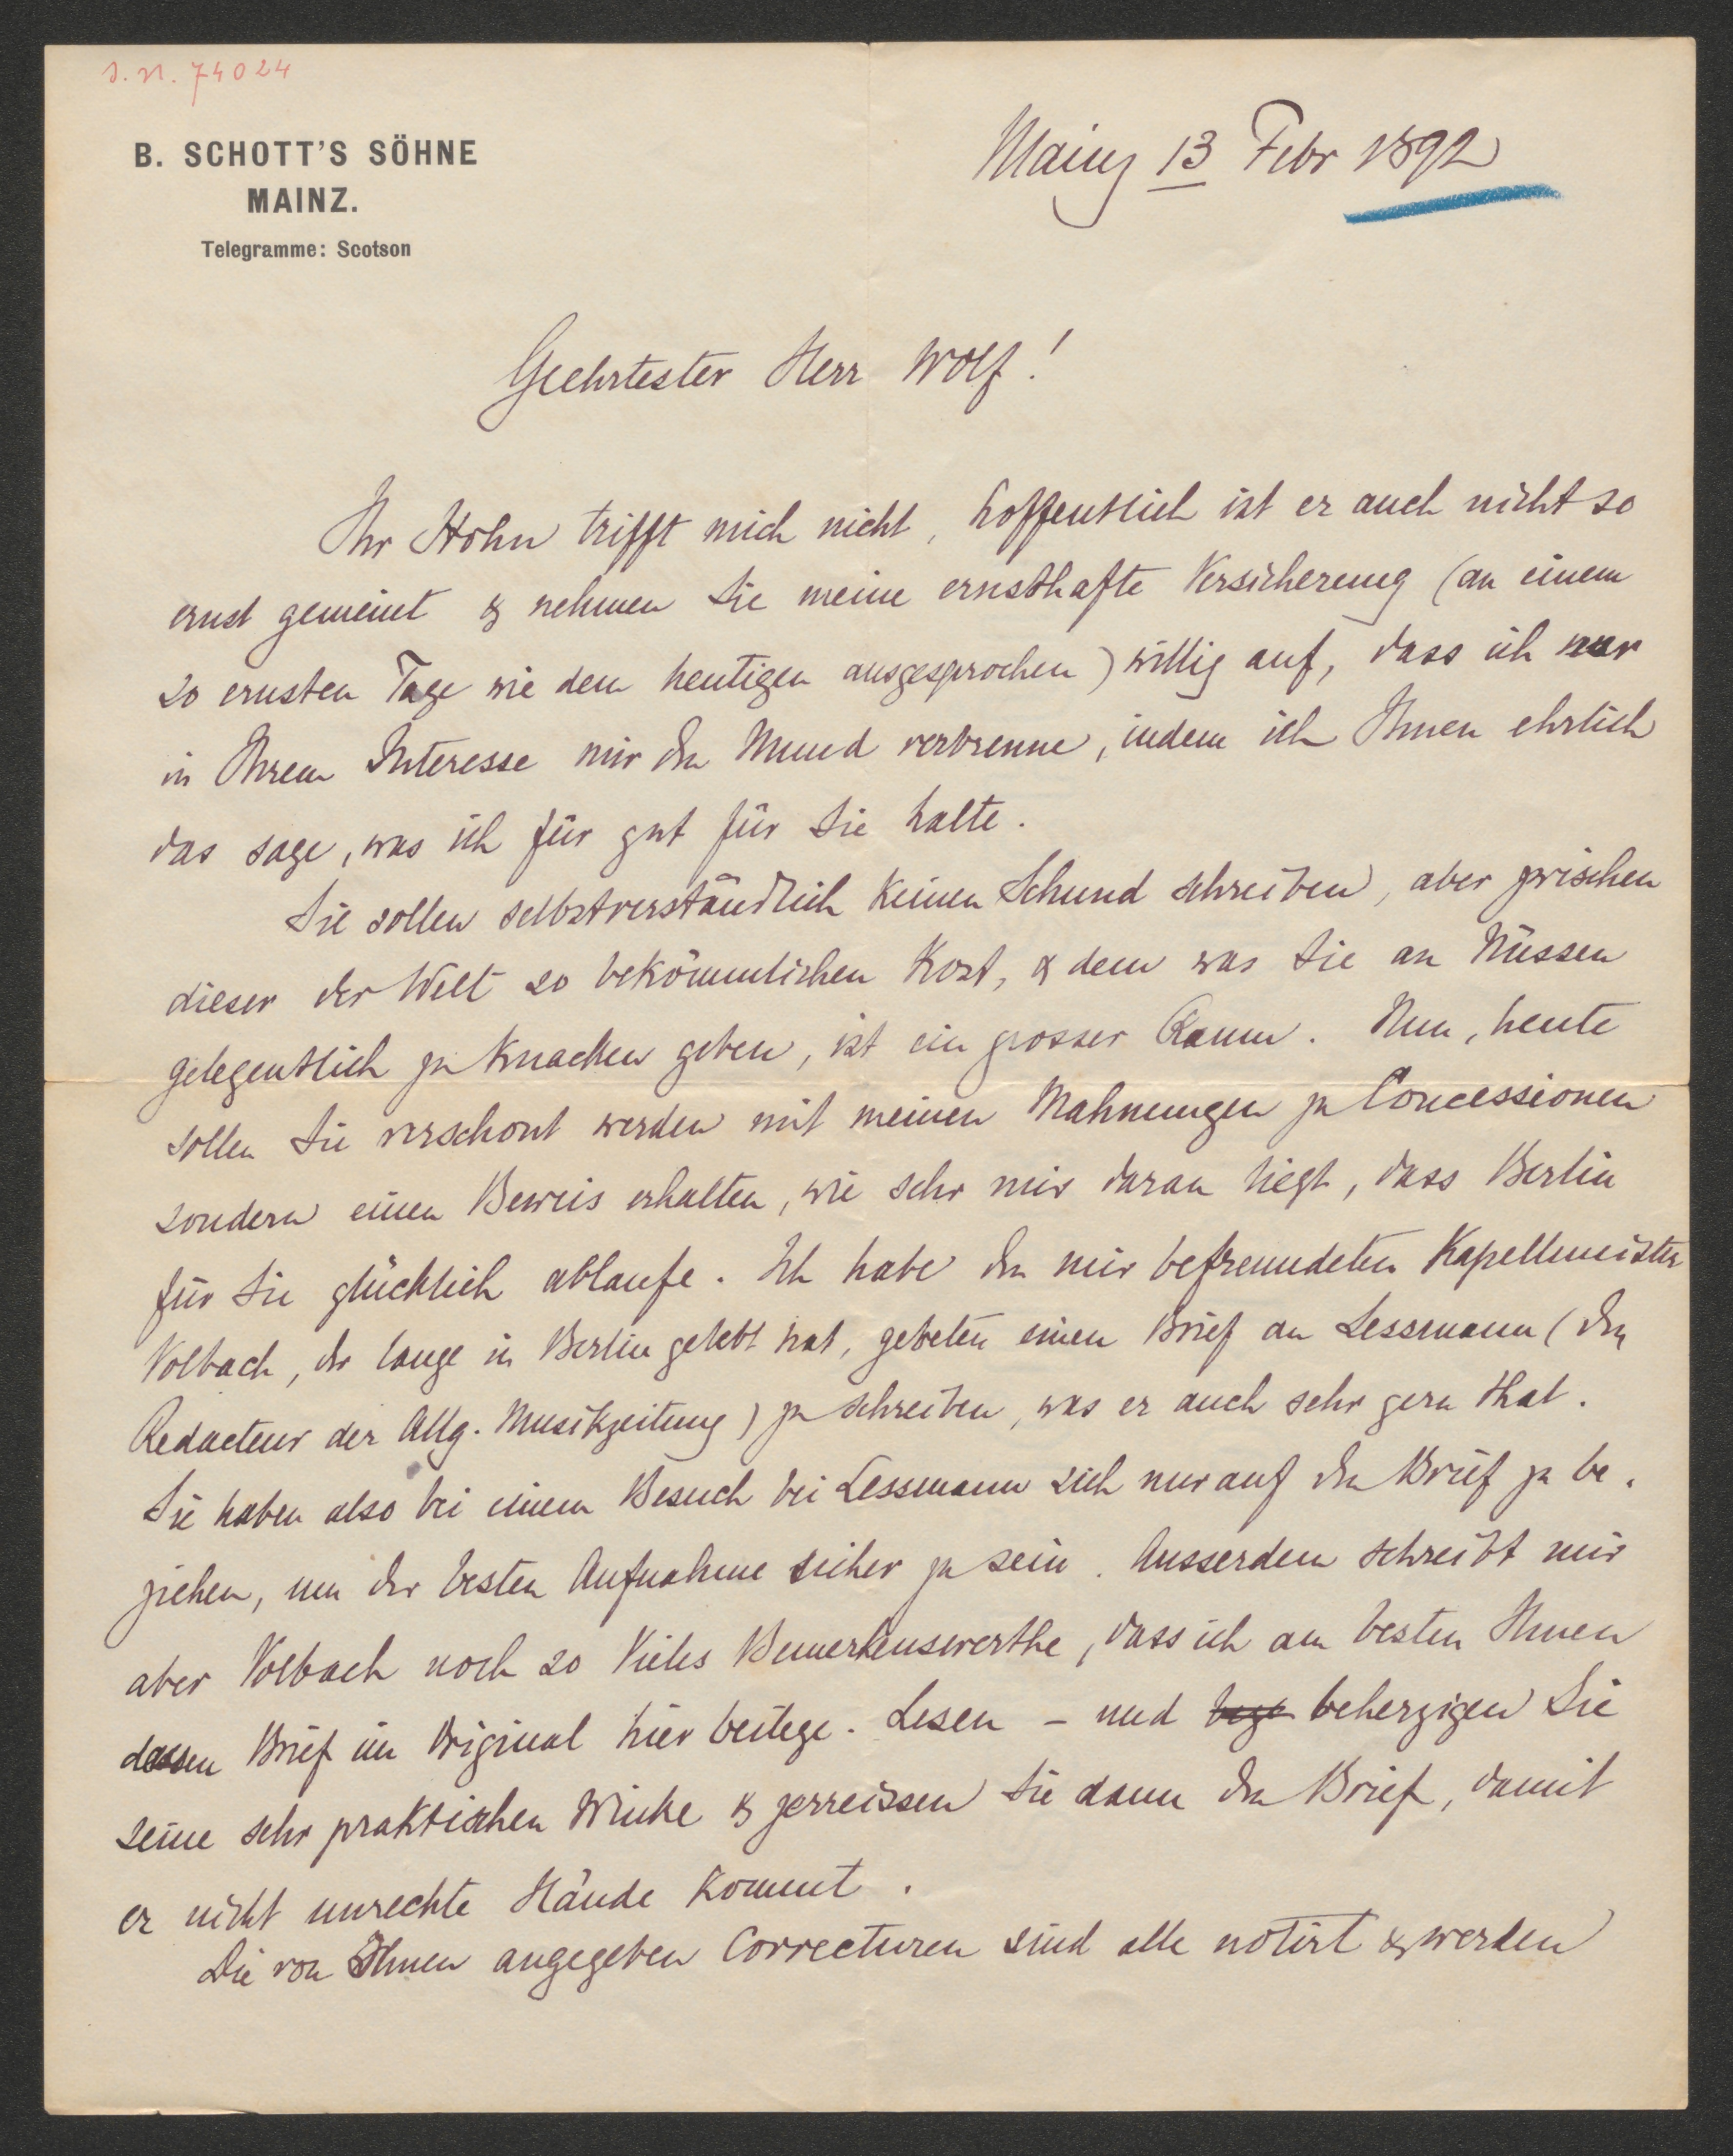 J. N. 74024
B. SCHOTT'S SÖHNE
MAINZ.
Telegramme: Scotson
Mainz 13 Febr 1892
Geehrtester Herr Wolf!
Ihr Hohn trifft mich nicht, hoffentlich ist er auch nicht so
ernst gemeint & nehmen Sie meine ernsthafte Versicherung (an einem
so ernsten Tage wie dem heutigen ausgesprochen) willig auf, dass ich nur
in Ihrem Interesse mir den Mund verbrenne, indem ich Ihnen ehrlich
das sage, was ich für gut für Sie halte.
Sie sollen selbstverständlich keinen Schund schreiben, aber zwischen
dieser der Welt so bekömmlichen Kost, & dem was Sie an Nüssen
gelegentlich zu knacken geben, ist ein grosser Raum. Nun, heute
sollen Sie verschont werden mit meinen Mahnungen zu Concessionen
sondern einen Beweis erhalten, wie sehr mir daran liegt, dass Berlin
für Sie glücklich ablaufe. Ich habe den mir befreundeten Kapellmeister
Volbach, der lange in Berlin gelebt hat, gebeten einen Brief an Lessmann (den
Redacteur der Allg. Musikzeitung) zu schreiben, was er auch sehr gern that.
Sie haben also bei einem Besuch bei Lessmann sich nur auf den Brief zu be-
ziehen, um der besten Aufnahme sicher zu sein. Ausserdem schreibt mir
aber Volbach noch so Vieles Bemerkenswerthe, dass ich am besten Ihnen
dessen Brief im Original hier beilege. Lesen – und beherzigen Sie
seine sehr praktischen Winke & zerreissen Sie dann den Brief, damit
er nicht unrechte Hände kommt.
Die von Ihnen angegeben Correcturen sind alle notirt & werden